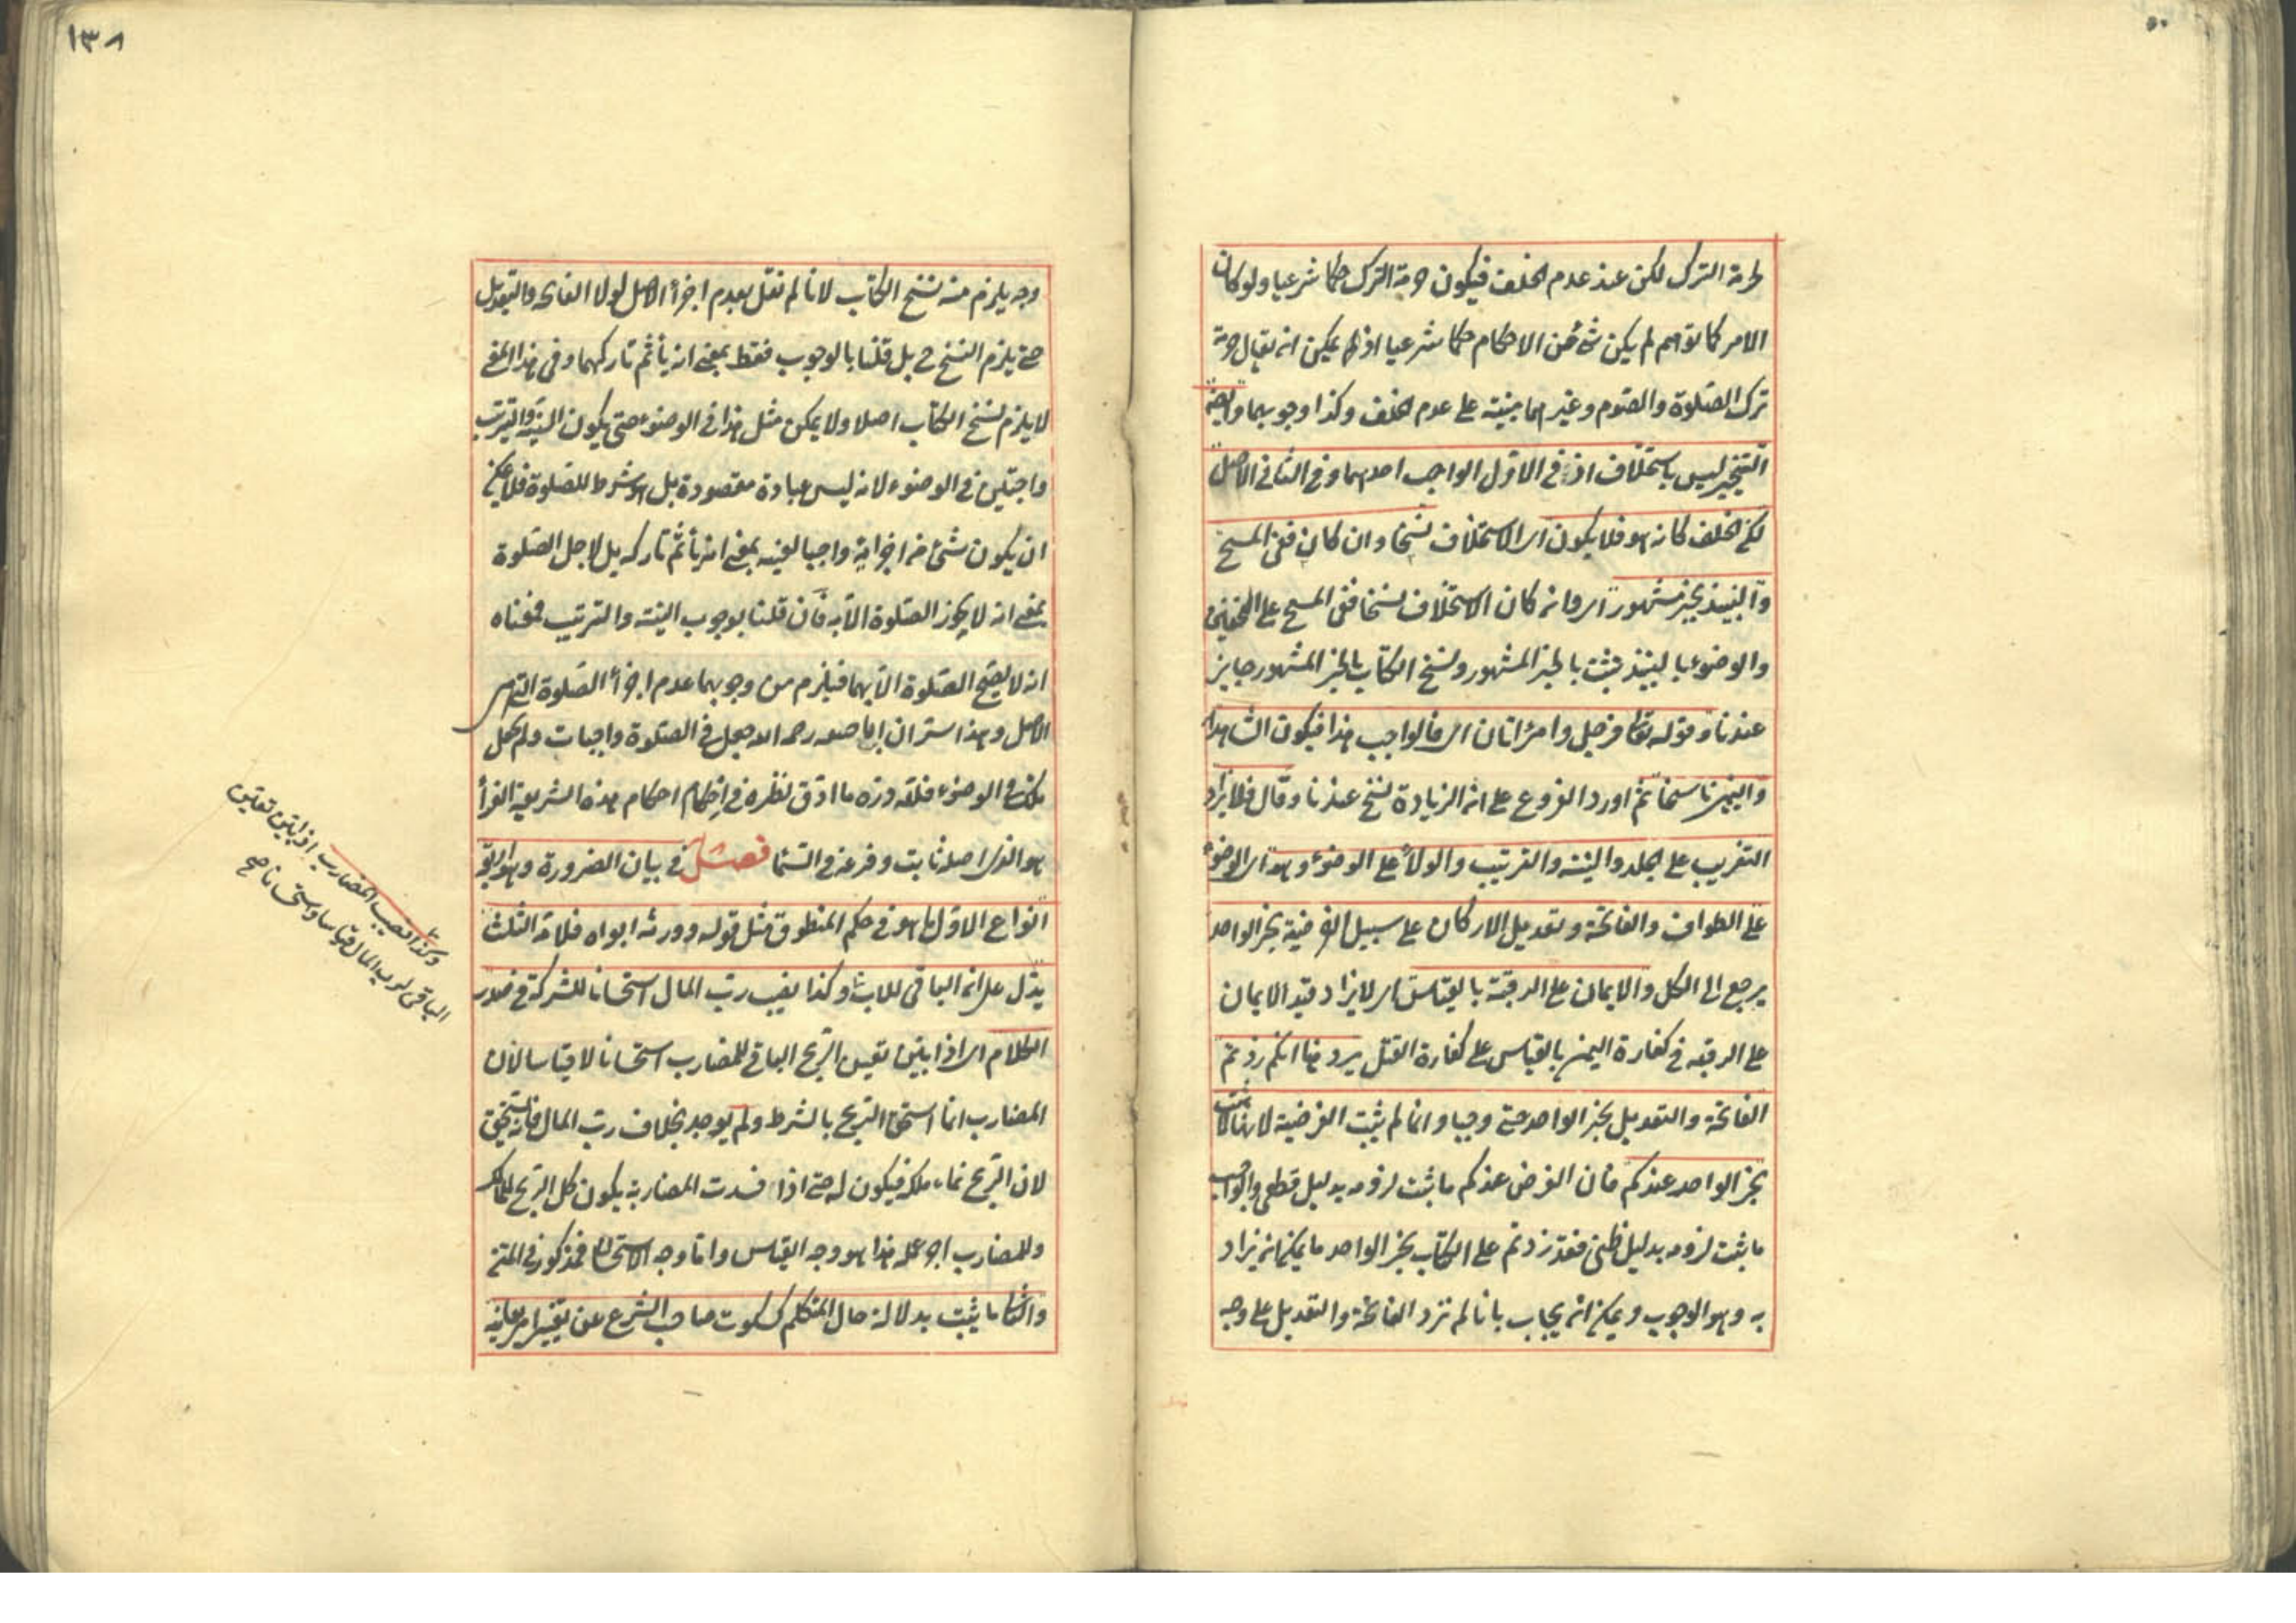 لحرمة الترك لكن عند عدم الخلف فيكون حرمة الترك حكما شرعيا ولو كان
الامر كما توهم لم يكن شئ من الاحكام حكما شرعيا اذ لم يكن ان يقال حرمة
ترك الصلوة والصوم وغيرهما مبنية على عدم الخلف وكذا وجوبهما وايضا
التخيير ليس باستخلاف اذ فى الاول الواجب احدهما وفى الثانى الاصل
لكن الخلف كانه هو فلا يكون اى الاستخلاف نسخا وان كان ففى المسح
والنبيذ بخبر مشهور اى وان كان الاستخلاف نسخا ففى المسح على الخفين
والوضوء بالنبيذ يثبت بالخبر المشهور ونسخ الكتاب بالخبر المشهور جايز
عندنا وقوله تعالى فرجل وامرأتان اى فالواجب هذا فيكون الشاهد
واليمين ناسخا ثم اورد الفروع على ان الزيادة نسخ عندنا وقال فلا يزاد
التغريب على الجلد والنية والترتيب والولاء على الوضوء وهو اى الوضوء
على الطواف والفاتحة وتعديل الاركان على سبيل الفرضية بخبر الواحد
يرجع الى الكل والايمان على الرقبة بالقياس اى لا يزاد قيد الايمان
على الرقبة فى كفارة اليمين بالقياس على كفارة القتل يرد هنا انكم زدتم
الفاتحة والتعديل بخبر الواحد حتى وجبا وانما لم يثبت الفرضية لانها لا تثبت
بخبر الواحد عندكم فان الفرض عندكم ما ثبت لزومه بدليل قطعى والواجب
ما ثبت لزومه بدليل ظنى فقد زدتم على الكتاب بخبر الواحد ما يمكن ان يزاد
به وهو الوجوب ويمكن ان يجاب بانا لم نزد الفاتحة والتعديل على وجه
١٣٨
وجه يلزم منه نسخ الكتاب لانا لم نقل بعدم اجزاء الاصل لولا الفاتحة والتعديل
حتى يلزم النسخ ح بل قلنا بالوجوب فقط بمعنى انه يأثم تاركهما وفى هذا المعنى
لا يلزم نسخ الكتاب اصلا ولا يمكن مثل هذا فى الوضوء حتى يكون النية والترتيب
واجبتين فى الوضوء لانه ليس عبادة مقصودة بل هو شرط للصلوة فلا يمكن
ان يكون شئ من اجزائه واجبا لعينه بمعنى انه يأثم تاركه بل لاجل الصلوة
بمعنى انه لا يجوز الصلوة الا به فان قلنا بوجوب النية والترتيب فمعناه
انه لا يصح الصلوة الا بهما فيلزم من وجوبهما عدم اجزاء الصلوة التى هى
الاصل وهذا سر ان ابا حنيفه رحمه الله جعل فى الصلوة واجبات ولم يجعل
ذلك فى الوضوء فلله دره ما ادق نظره فى احكام احكام هذه الشريعة الغراء
هو الذى اصله ثابت وفرعه فى السماء فصل فى بيان الضرورة وهو اربعة
انواع الاول ما هو فى حكم المنطوق مثل قوله وورثه ابواه فلامه الثلث
يدل على ان الباقى للاب وكذا نصيب رب المال استحسانا للشركة فى صدر
الكلام اى اذا بين نصيب الربح الباقى للمضارب استحسانا لا قياسا لان
المضارب انما استحق الربح بالشرط ولم يوجد بخلاف رب المال فانه يستحق
لان الربح نماء ملكه فيكون له حتى اذا فسدت المضاربة يكون كل الربح للمالك
وللمضارب اجر عمله هذا هو وجه القياس واما وجه الاستحسان فمذكور فى المتن
والثانى ما يثبت بدلالة حال المتكلم كسكوت صاحب الشرع عن تغيير امر يعاينه
وكذا نصيب المضارب اذا بين تعين
الباقى لرب المال قياسا واستحسانا صح